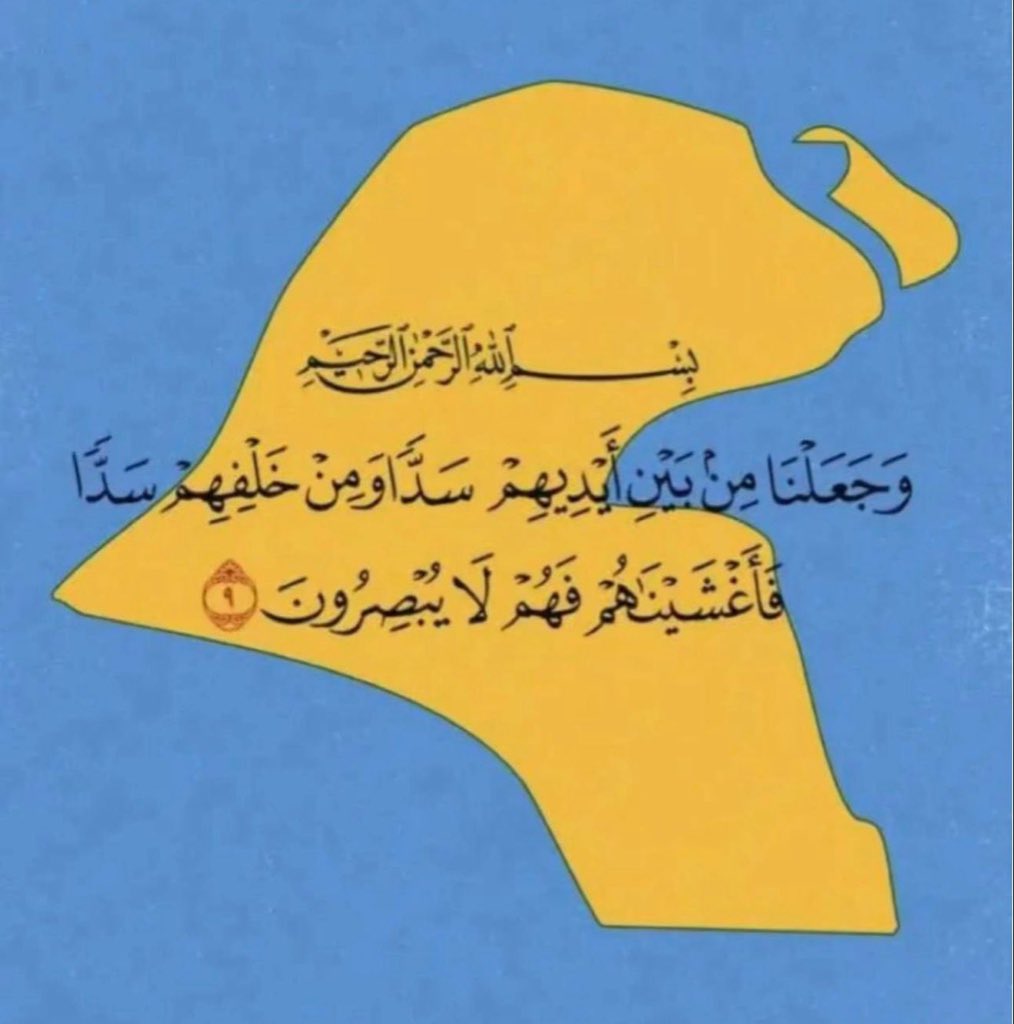 بِسْمِ ٱللَّهِ ٱلرَّحْمَٰنِ ٱلرَّحِيمِ
وَجَعَلْنَا مِنۢ بَيْنِ أَيْدِيهِمْ سَدًّا وَمِنْ خَلْفِهِمْ سَدًّا
فَأَغْشَيْنَٰهُمْ فَهُمْ لَا يُبْصِرُونَ ٩